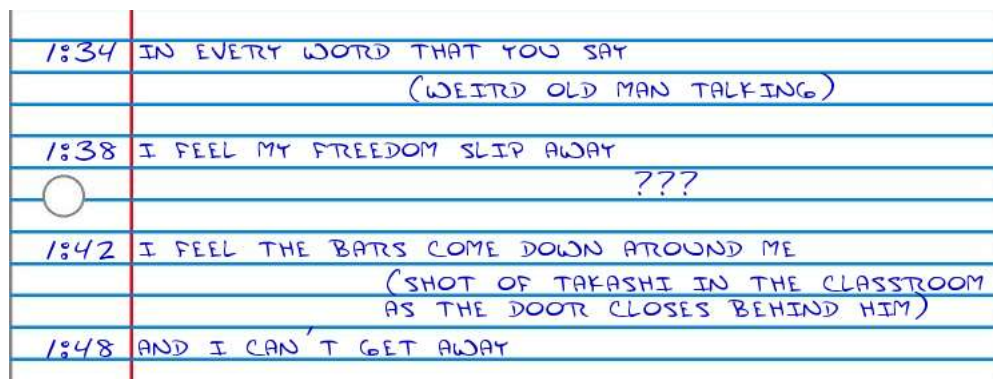 1:34 IN EVERY WORD THAT YOU SAY
(WEIRD OLD MAN TALKING)
1:38 I FEEL MY FREEDOM SLIP AWAY
???
1:42 I FEEL THE BARS COME DOWN AROUND ME
(SHOT OF TAKASHI IN THE CLASSROOM
AS THE DOOR CLOSES BEHIND HIM)
1:48 AND I CAN'T GET AWAY